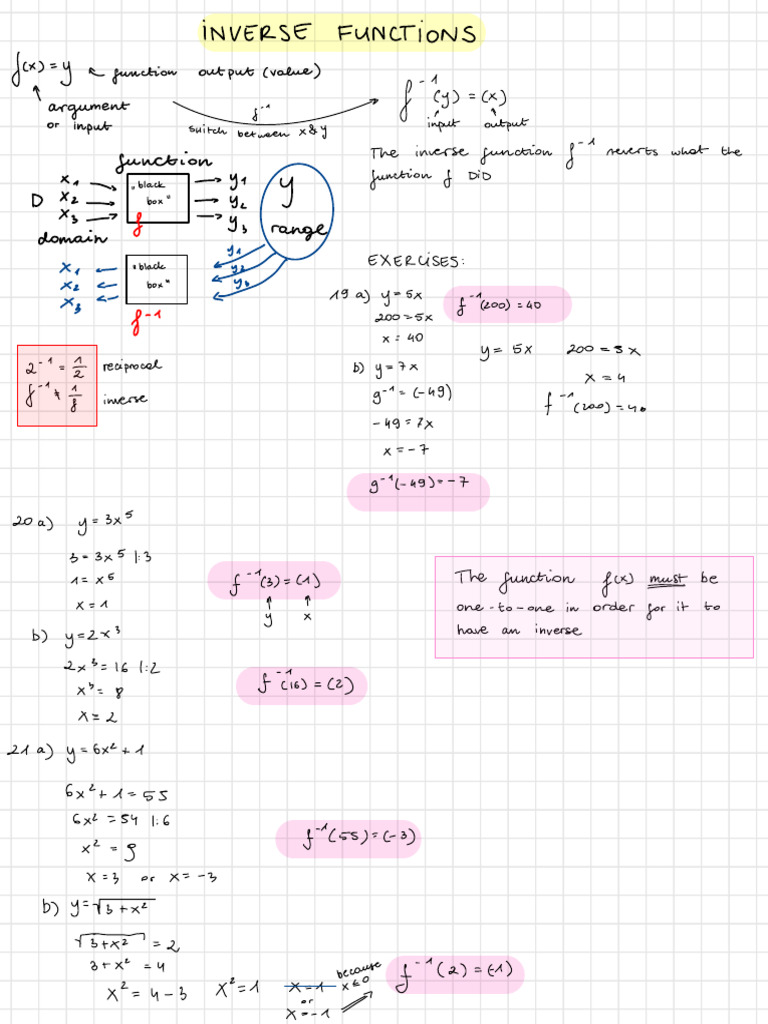 INVERSE FUNCTIONS
f(x) = y ← function output (value)
argument
or input
f⁻¹
switch between x & y
f⁻¹(y) = (x)
input output
The inverse function f⁻¹ reverts what the
function f DiD
function
D x1 x2 x3
domain
"black
box"
f
y1
y2
y3
y
range
y1
y2
y3
x1
x2
x3
"black
box"
f⁻¹
2⁻¹ = 1/2 reciprocal
f⁻¹ ≠ 1/f inverse
EXERCISES:
19 a) y = 5x
200 = 5x
x = 40
f⁻¹(200) = 40
y = 5x 200 = 5x
x = 4
f⁻¹(200) = 40
b) y = 7x
g⁻¹ = (-49)
-49 = 7x
x = -7
g⁻¹(-49) = -7
20 a) y = 3x⁵
3 = 3x⁵ |:3
1 = x⁵
x = 1
f⁻¹(3) = (1)
y x
The function f(x) must be
one-to-one in order for it to
have an inverse
b) y = 2x³
2x³ = 16 |:2
x³ = 8
x = 2
f⁻¹(16) = (2)
21 a) y = 6x² + 1
6x² + 1 = 55
6x² = 54 |:6
x² = 9
x = 3 or x = -3
f⁻¹(55) = (-3)
b) y = √3 + x²
√3 + x² = 2
3 + x² = 4
x² = 4 - 3 x² = 1 x = 1
or
x = -1
because
x ≤ 0
f⁻¹(2) = (-1)